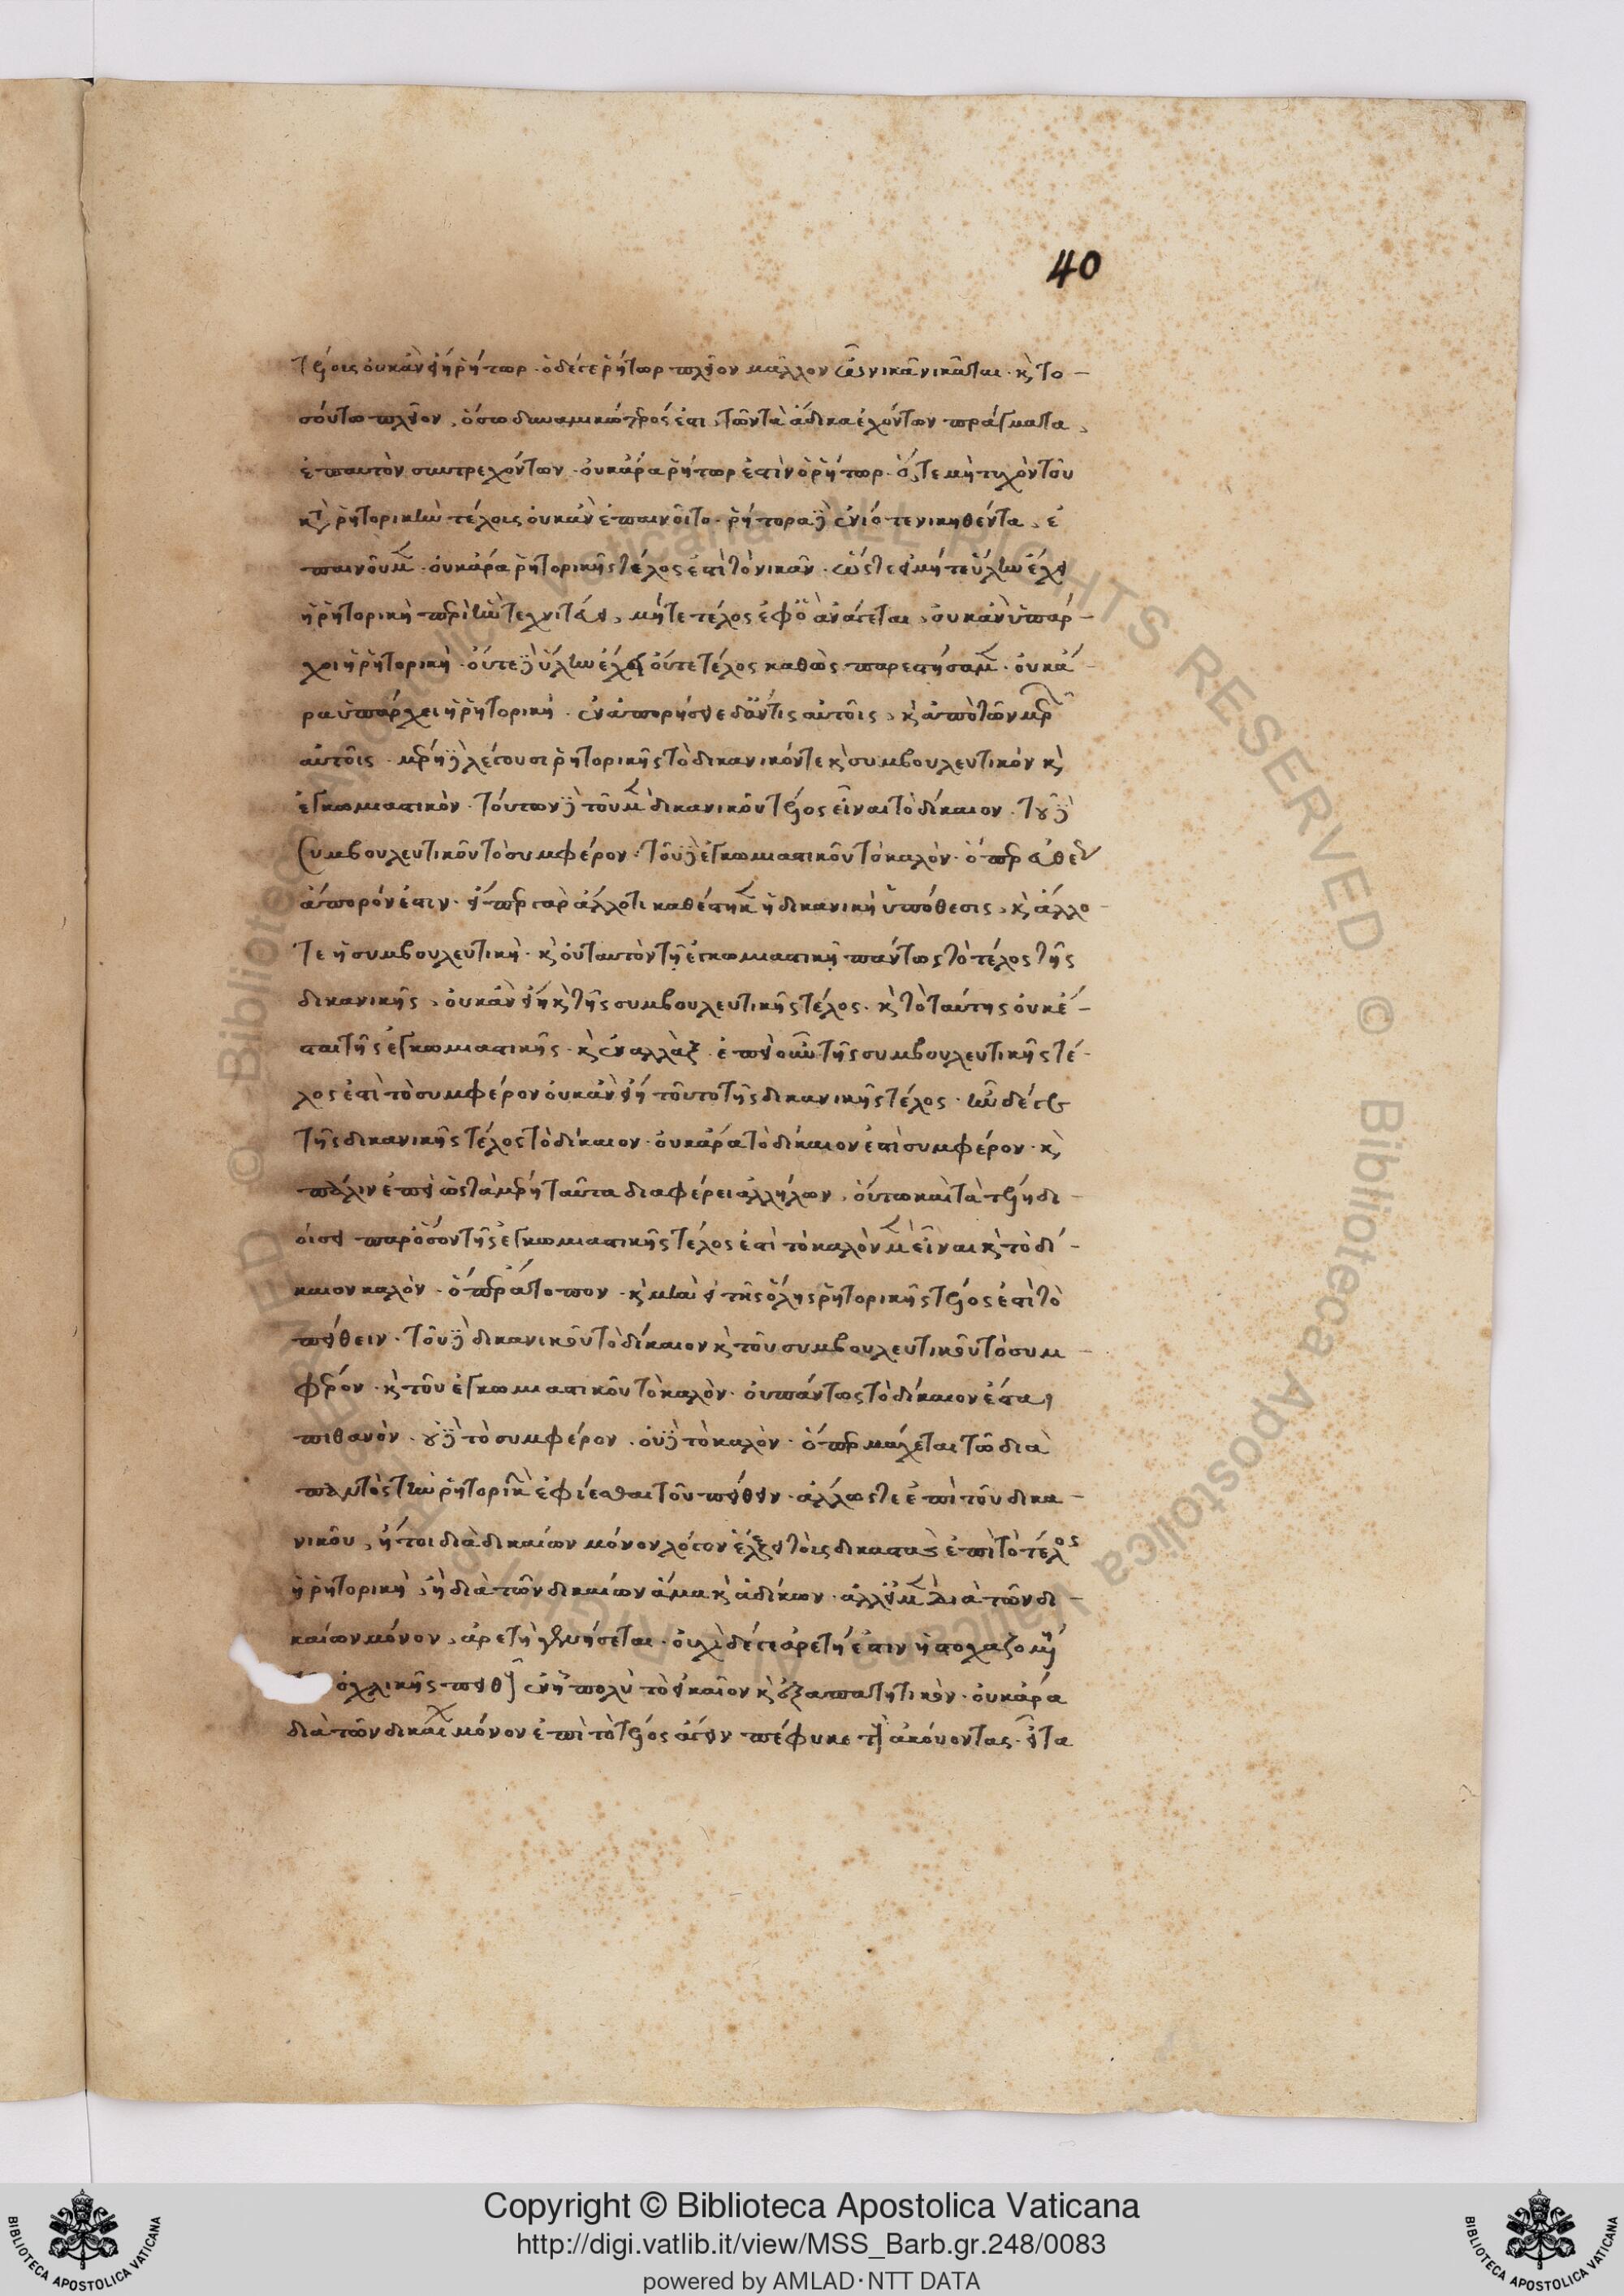 40
τέλους οὐκ ἂν εἴη ῥήτωρ. ὁ δέ γε ῥήτωρ πλεῖον μᾶλλον νικᾶν νικᾶται. καὶ το-
σούτω πλεῖον, ὅσω δυναμικώτερός ἐστι, τῶν τὰ ἄδικα ἐχόντων πράγματα,
ἐπ αὐτὸν συντρεχόντων. οὐκ ἄρα ῥήτωρ ἐστὶν ὁ ῥήτωρ. ὅ, τε μὴ τυχὼν τοῦ
κατὰ ῥητορικὴν τέλους οὐκ ἂν ἐπαινοῖτο. ῥήτορα δὲ ἐνίοτε νικηθέντα, ἐ
παινοῦμεν. οὐκ ἄρα ῥητορικῆς τέλος ἐστὶ τὸ νικᾶν. ὥστε εἰ μήτε ὕλην ἔχει
ἡ ῥητορικὴ περὶ ἣν τεχνιτεύει, μήτε τέλος ἐφ ὃ ἀνάγεται, οὐκ ἂν ὑπάρ-
χοι ἡ ῥητορικὴ. οὔτε δὲ ὕλην ἔχει οὔτε τέλος καθὼς παρεστήσαμεν. οὐκ ἄ-
ρα ὑπάρχει ἡ ῥητορική. ἐναπορήσειε δ ἄν τις αὐτοῖς, καὶ ἀπὸ τῶν μερῶν
αὐτοῖς. μέρη δὲ λέγουσι ῥητορικῆς τὸ δικανικόν τε καὶ συμβουλευτικόν καὶ
ἐγκωμιαστικὸν. τούτων δὲ τοῦ μὲν δικανικοῦ τέλος εἶναι τὸ δίκαιον. τοῦ δὲ
συμβουλευτικοῦ τὸ συμφέρον. τοῦ δὲ ἐγκωμιαστικοῦ τὸ καλὸν. ὅπερ εὐθὺς
ἄπορόν ἐστιν. εἴπερ γὰρ ἄλλο τι καθέστηκεν ἡ δικανικὴ ὑπόθεσις, καὶ ἄλλο-
τε ἡ συμβουλευτικὴ. καὶ οὐ ταυτὸν τῇ ἐγκωμιαστικῇ πάντως τὸ τέλος τῆς
δικανικῆς, οὐκ ἂν εἴη καὶ τῆς συμβουλευτικῆς τέλος. καὶ τὸ ταύτης οὐκ ἔ-
σται τῆς ἐγκωμιαστικῆς. καὶ ἐναλλὰξ. ἐπεὶ οὖν τῆς συμβουλευτικῆς τέ-
λος ἐστὶ τὸ συμφέρον οὐκ ἂν εἴη τοῦτο τῆς δικανικῆς τέλος. ἦν δέ γε
τῆς δικανικῆς τέλος τὸ δίκαιον. οὐκ ἄρα τὸ δίκαιον ἐστὶ συμφέρον. καὶ
πάλιν ἐπεὶ ὡς τὰ μέρη ταῦτα διαφέρει ἀλλήλων, οὕτω καὶ τὰ τέλη δι-
οίσει παρ ὅσον τῆς ἐγκωμιαστικῆς τέλος ἐστὶ τὸ καλὸν μὴ εἶναι καὶ τὸ δί-
καιον καλὸν. ὅπερ ἄτοπον. καὶ μὴν εἰ τῆς ὅλης ῥητορικῆς τέλος ἐστὶ τὸ
πείθειν. τοῦ δὲ δικανικοῦ τὸ δίκαιον καὶ τοῦ συμβουλευτικοῦ τὸ συμ-
φέρον. καὶ τοῦ ἐγκωμιαστικοῦ τὸ καλὸν. οὐ πάντως τὸ δίκαιον ἔσται
πιθανὸν. οὐδὲ τὸ συμφέρον. οὐδὲ τὸ καλὸν. ὅπερ μάχεται τῶ διὰ
παντὸς τὴν ῥητορικὴν ἐφίεσθαι τοῦ πείθειν. ἄλλως τε ἐπὶ τοῦ δικα-
νικοῦ, ἤτοι διὰ δικαίων μόνον λόγον ἕλξει τοὺς δικαστὰς ἐπὶ τὸ τέλος
ἡ ῥητορικὴ, ἢ διὰ τῶν δικαίων ἅμα καὶ ἀδίκων. ἀλλ εἰ μὲν διὰ τῶν δι-
καίων μόνον, ἀρετὴ γενήσεται. οὐχὶ δέ γε ἀρετή ἐστιν ἡ στοχαζομένη
ὀχλικῆς πειθοῦς ἐν ᾗ πολὺ τὸ εἰκαῖον καὶ ἐξαπατητικὸν. οὐκ ἄρα
διὰ τῶν δικαίων μόνον ἐπὶ τὸ τέλος ἄγειν πέφυκε τοὺς ἀκούοντας. εἶτα
Copyright © Biblioteca Apostolica Vaticana
http://digi.vatlib.it/view/MSS_Barb.gr.248/0083
powered by AMLAD·NTT DATA